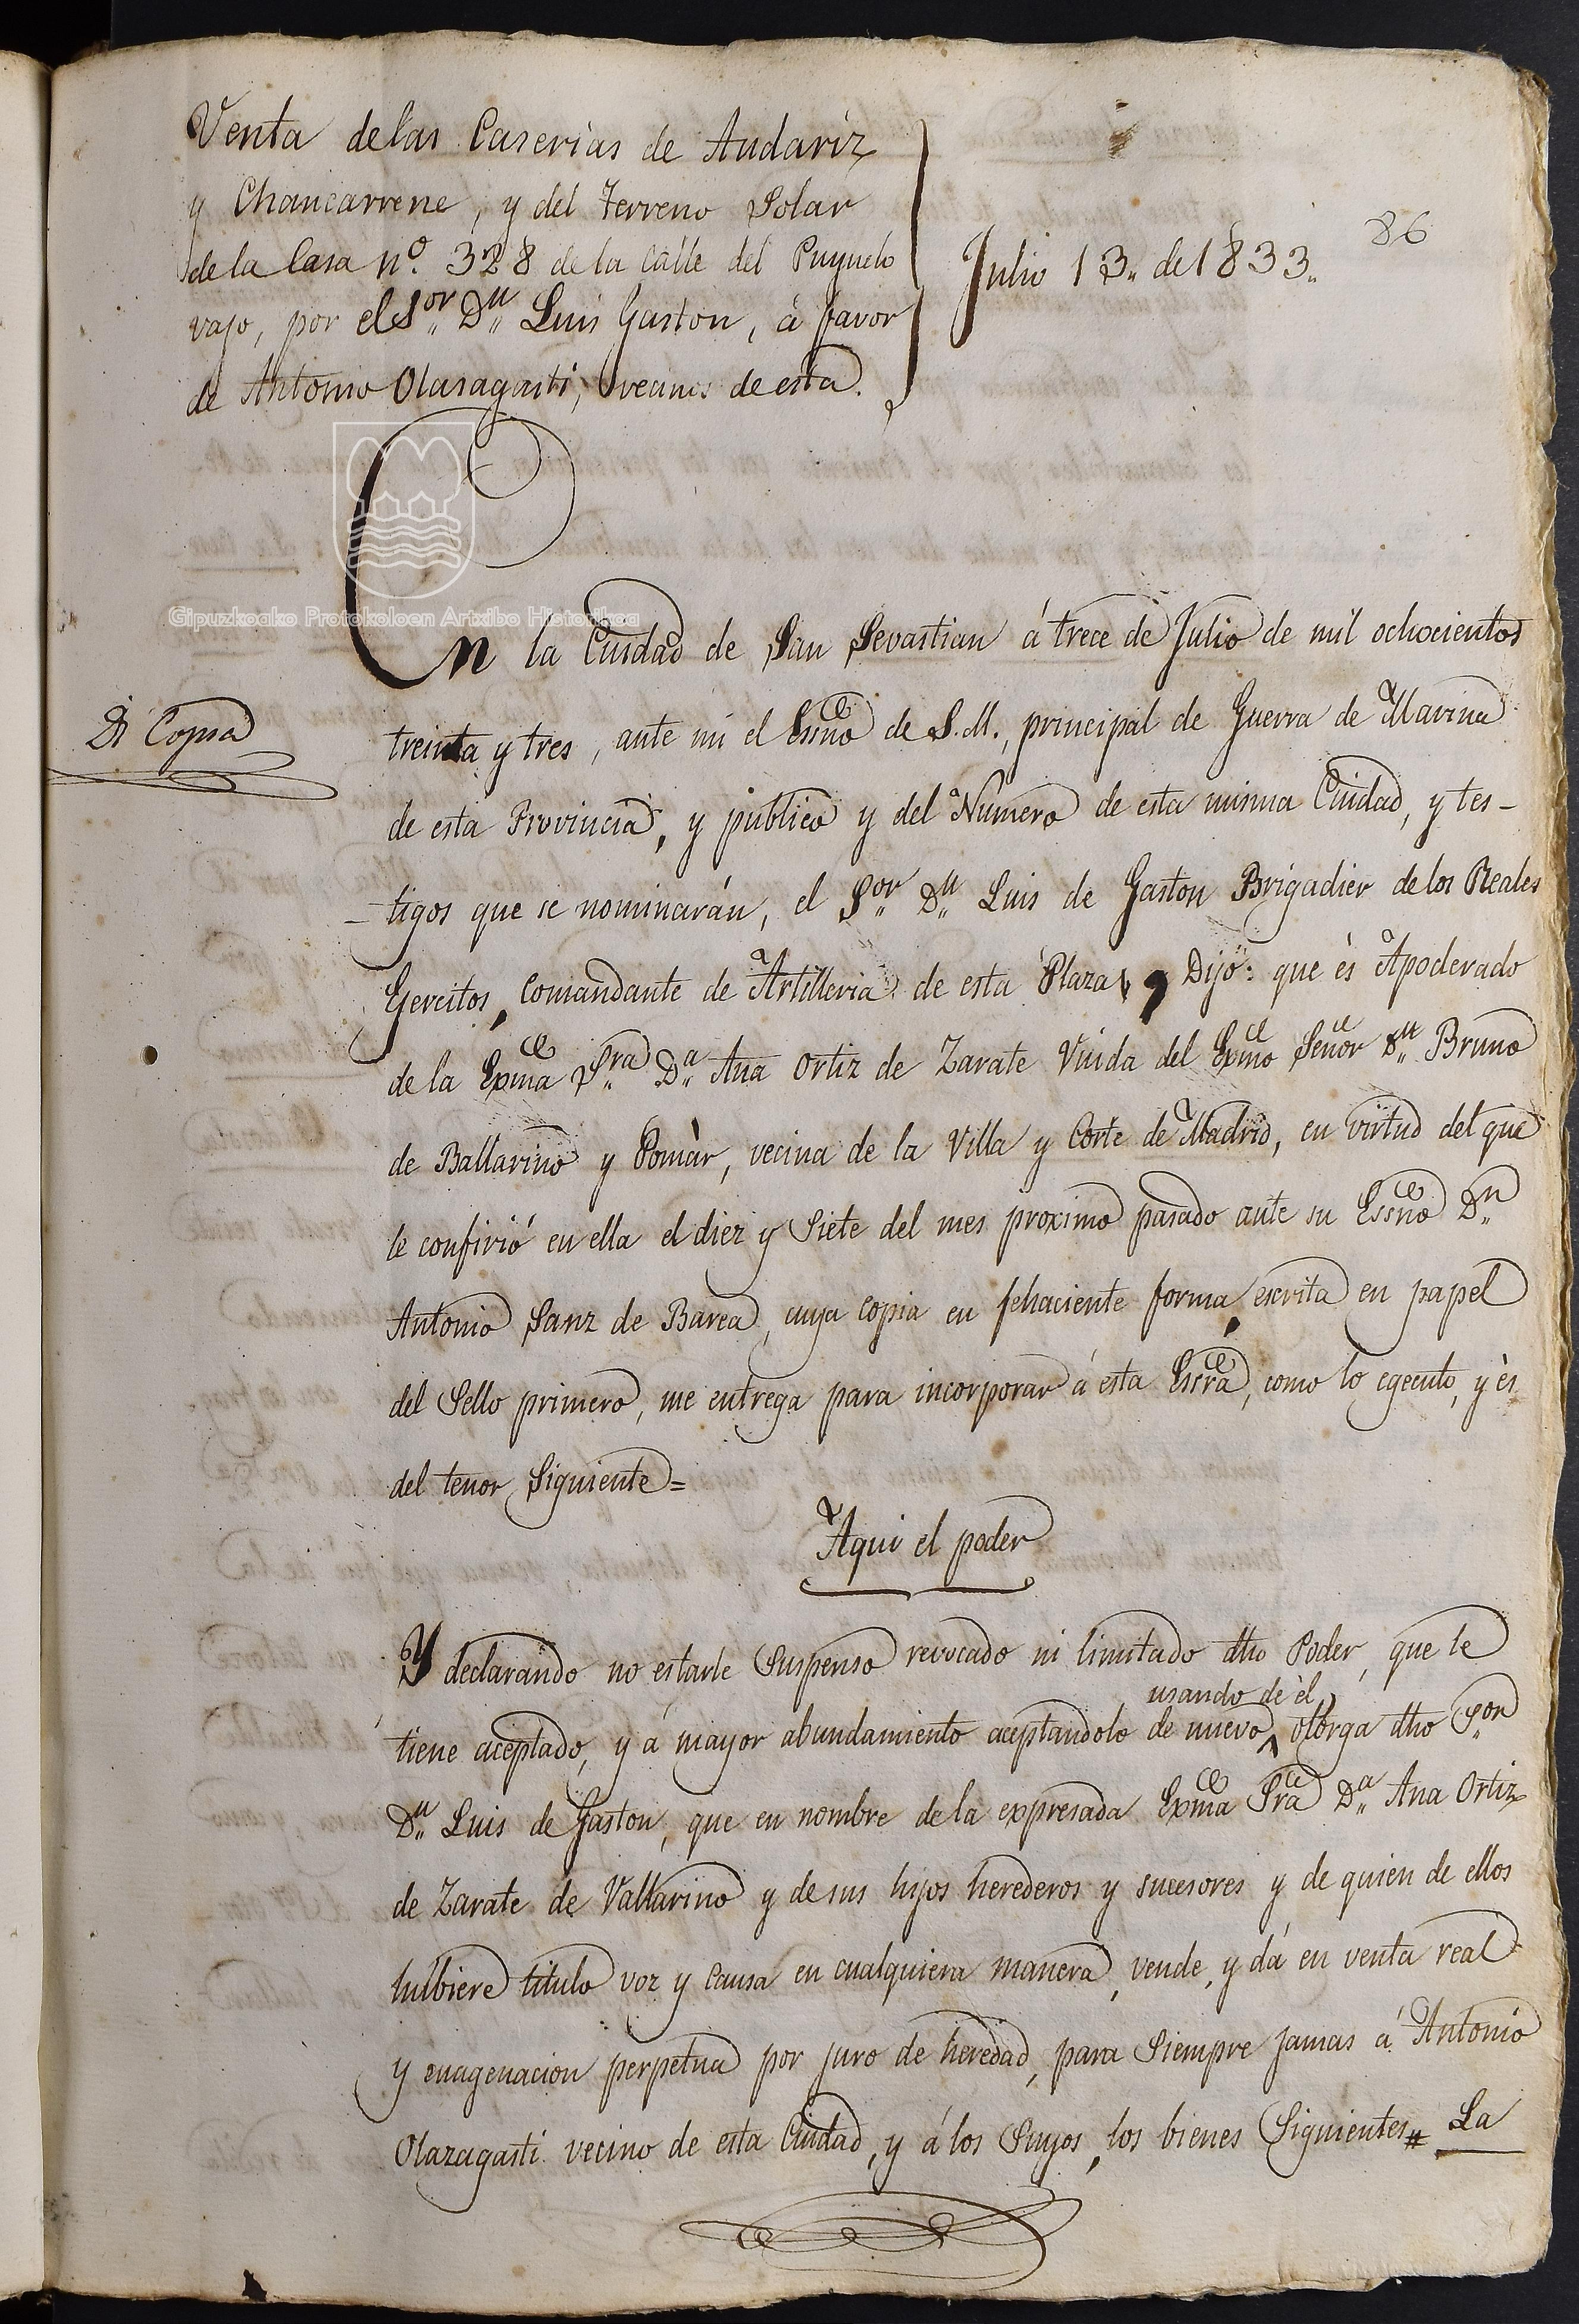 Venta de las Caserias de Andariz
y Chancarrene, y del Terreno Solar
de la Casa nº. 328 de la Calle del Puyuelo
vajo, por el Sor. Dn. Luis Gaston, á favor
de Antonio Olasagasti, vecinos de esta.
Julio 13. de 1833.
86
Gipuzkoako Protokoloen Artxibo Historikoa
En la Ciudad de San Sevastian á trece de Julio de mil ochocientos
Di Copia
treinta y tres, ante mi el Essno de S.M., principal de Guerra de Marina
de esta Provincia, y publico y del Numero de esta misma Ciudad, y tes-
-tigos que se nominarán, el Sor. Dn. Luis de Gaston Brigadier de los Reales
Egercitos, Comandante de Artilleria de esta Plaza, y Dijo: que ès Apoderado
de la Exma Sra. Da. Ana Ortiz de Zarate Viuda del Exmo Señor Dn. Bruno
de Ballarino y Pomàr, vecina de la Villa y Corte de Madrid, en virtud del que
le confirió en ella el diez y Siete del mes proximo pasado ante su Essno Dn.
Antonio Sanz de Barea, cuya copia en fehaciente forma, escrita en papel
del Sello primero, me entrega para incorporar á esta Escra, como lo egecuto, y ès
del tenor Siguiente=
Aqui el poder
Y declarando no estarle Suspenso revocado ni limitado dho Poder, que le
usando de èl,
tiene aceptado, y á mayor abundamiento aceptandolo de nuevo, otorga dho Sor.
Dn. Luis de Gaston, que en nombre de la expresada Exma Sra Da. Ana Ortiz
de Zarate de Vallarino y de sus hijos herederos y sucesores y de quien de ellos
hubiere titulo voz y causa en cualquiera manera, vende, y dá en venta real
y enagenacion perpetua por juro de heredad, para Siempre jamas á Antonio
Olazagasti vecino de esta Ciudad, y á los Suyos, los bienes Siguientes= La